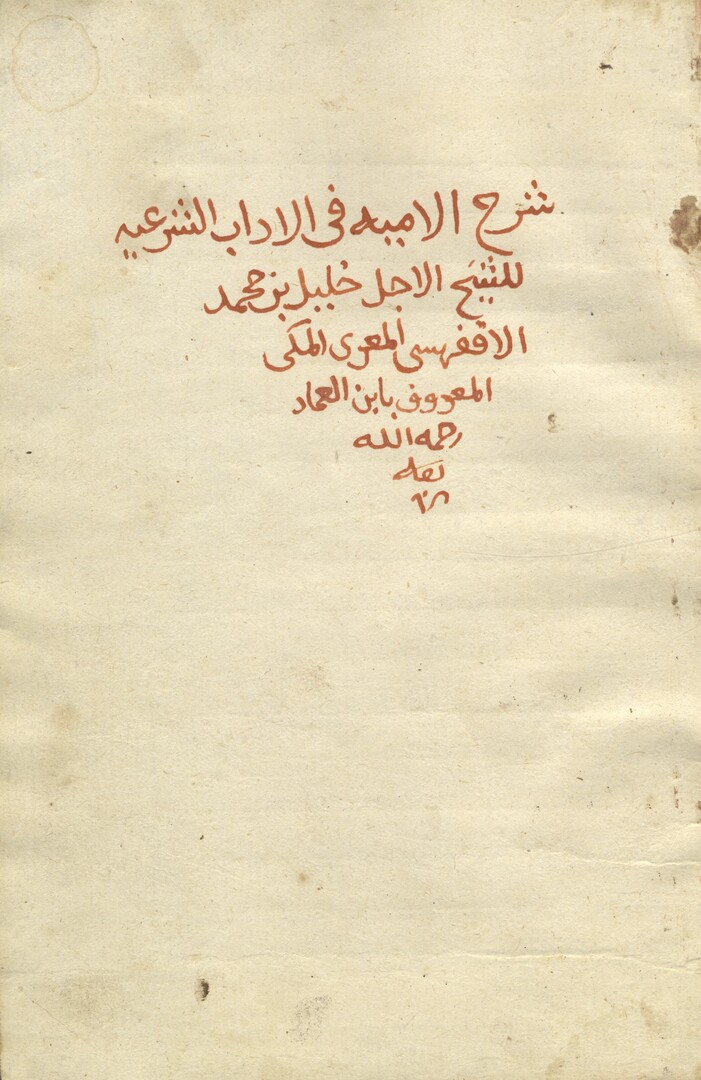 شرح الاميه فى الاداب الشرعيه
للشيخ الاجل خليل بن محمد
الاقفهسى المصرى المكى
المعروف بابن العماد
رحمه الله
تعالى